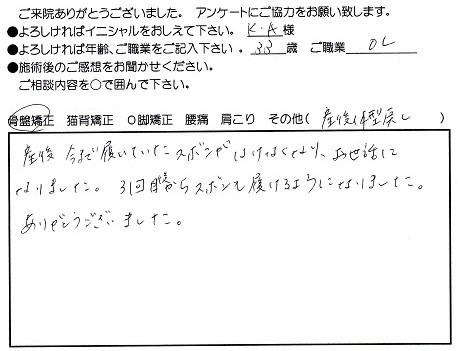 ご来院ありがとうございました。 アンケートにご協力をお願い致します。
●よろしければイニシャルをおしえて下さい。 K・A 様
●よろしければ年齢、ご職業をご記入下さい。 33 歳 ご職業 OL
●施術後のご感想をお聞かせください。
ご相談内容を○で囲んで下さい。
骨盤矯正 猫背矯正 O脚矯正 腰痛 肩こり その他( 産後体型戻し )
産後 今まで履いていたズボンがはけなくなり、お世話に
なりました。 3回目からズボンも履けるようになりました。
ありがとうございました。